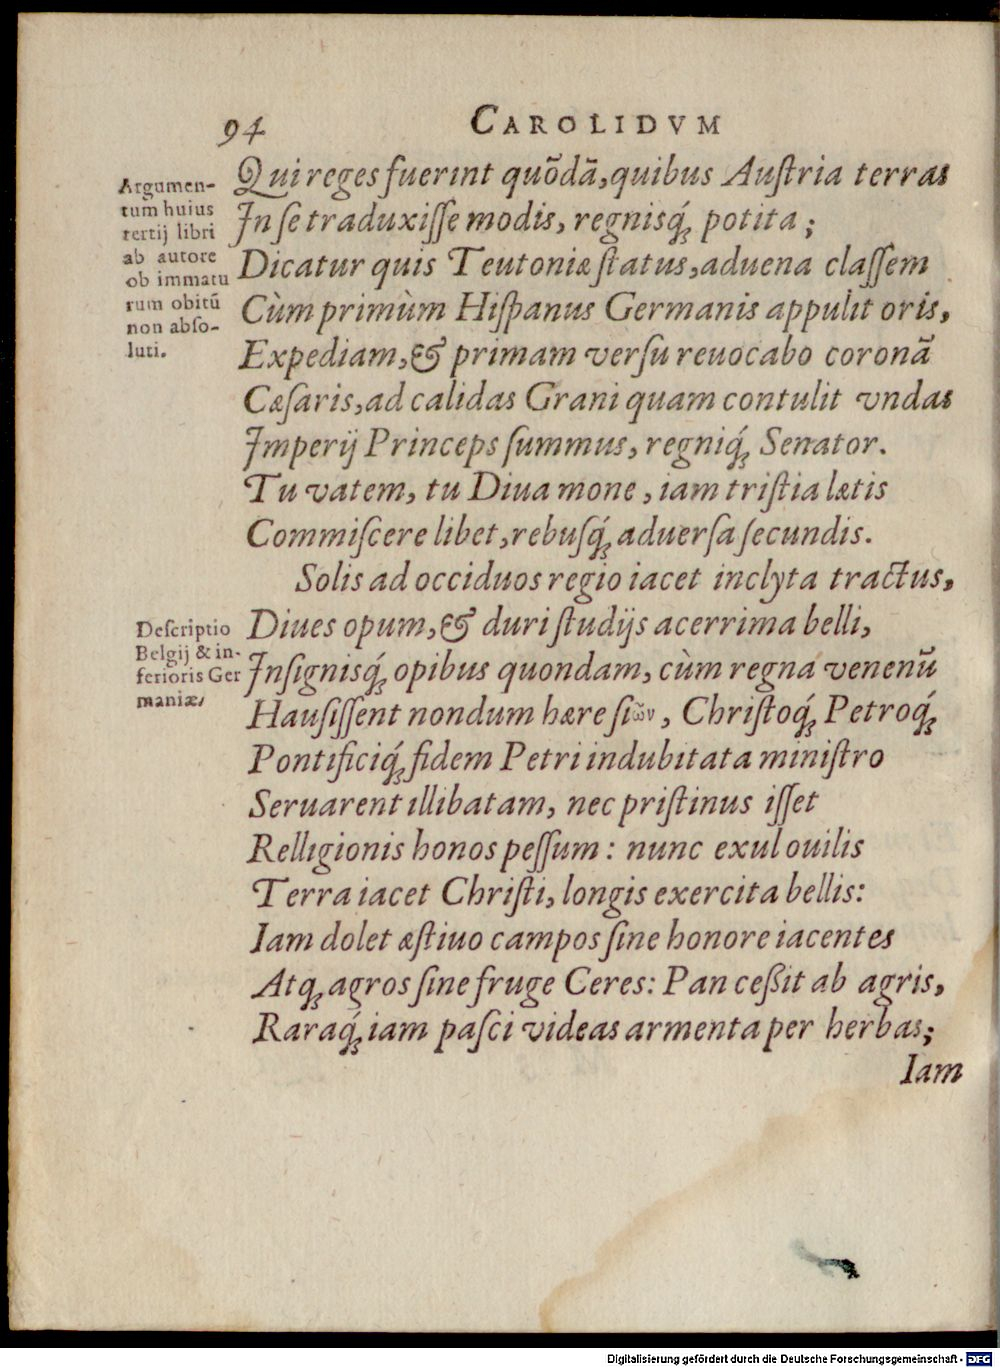 94 CAROLIDVM
Argumen-
tum huius
tertij libri
ab autore
ob immatu
rum obitũ
non abso-
luti.
Qui reges fuerint quõdã, quibus Austria terras
In se traduxisse modis, regnisq́; potita;
Dicatur quis Teutoniæ status, aduena classem
Cùm primùm Hispanus Germanis appulit oris,
Expediam, & primam versu reuocabo coronã
Cæsaris, ad calidas Grani quam contulit vndas
Imperij Princeps summus, regniq́; Senator.
Tu vatem, tu Diua mone, iam tristia lætis
Commiscere libet, rebusq́; aduersa secundis.
Solis ad occiduos regio iacet inclyta tractus,
Descriptio
Belgij & in-
ferioris Ger
maniæ,
Diues opum, & duri studijs acerrima belli,
Insignisq́; opibus quondam, cùm regna venenũ
Hausissent nondum hæresiῶν, Christoq́; Petroq́;
Pontificiq́; fidem Petri indubitata ministro
Seruarent illibatam, nec pristinus isset
Relligionis honos pessum: nunc exul ouilis
Terra iacet Christi, longis exercita bellis:
Iam dolet æstiuo campos sine honore iacentes
Atq; agros sine fruge Ceres: Pan ceßit ab agris,
Raraq́; iam pasci videas armenta per herbas;
Iam
Digitalisierung gefördert durch die Deutsche Forschungsgemeinschaft - DFG